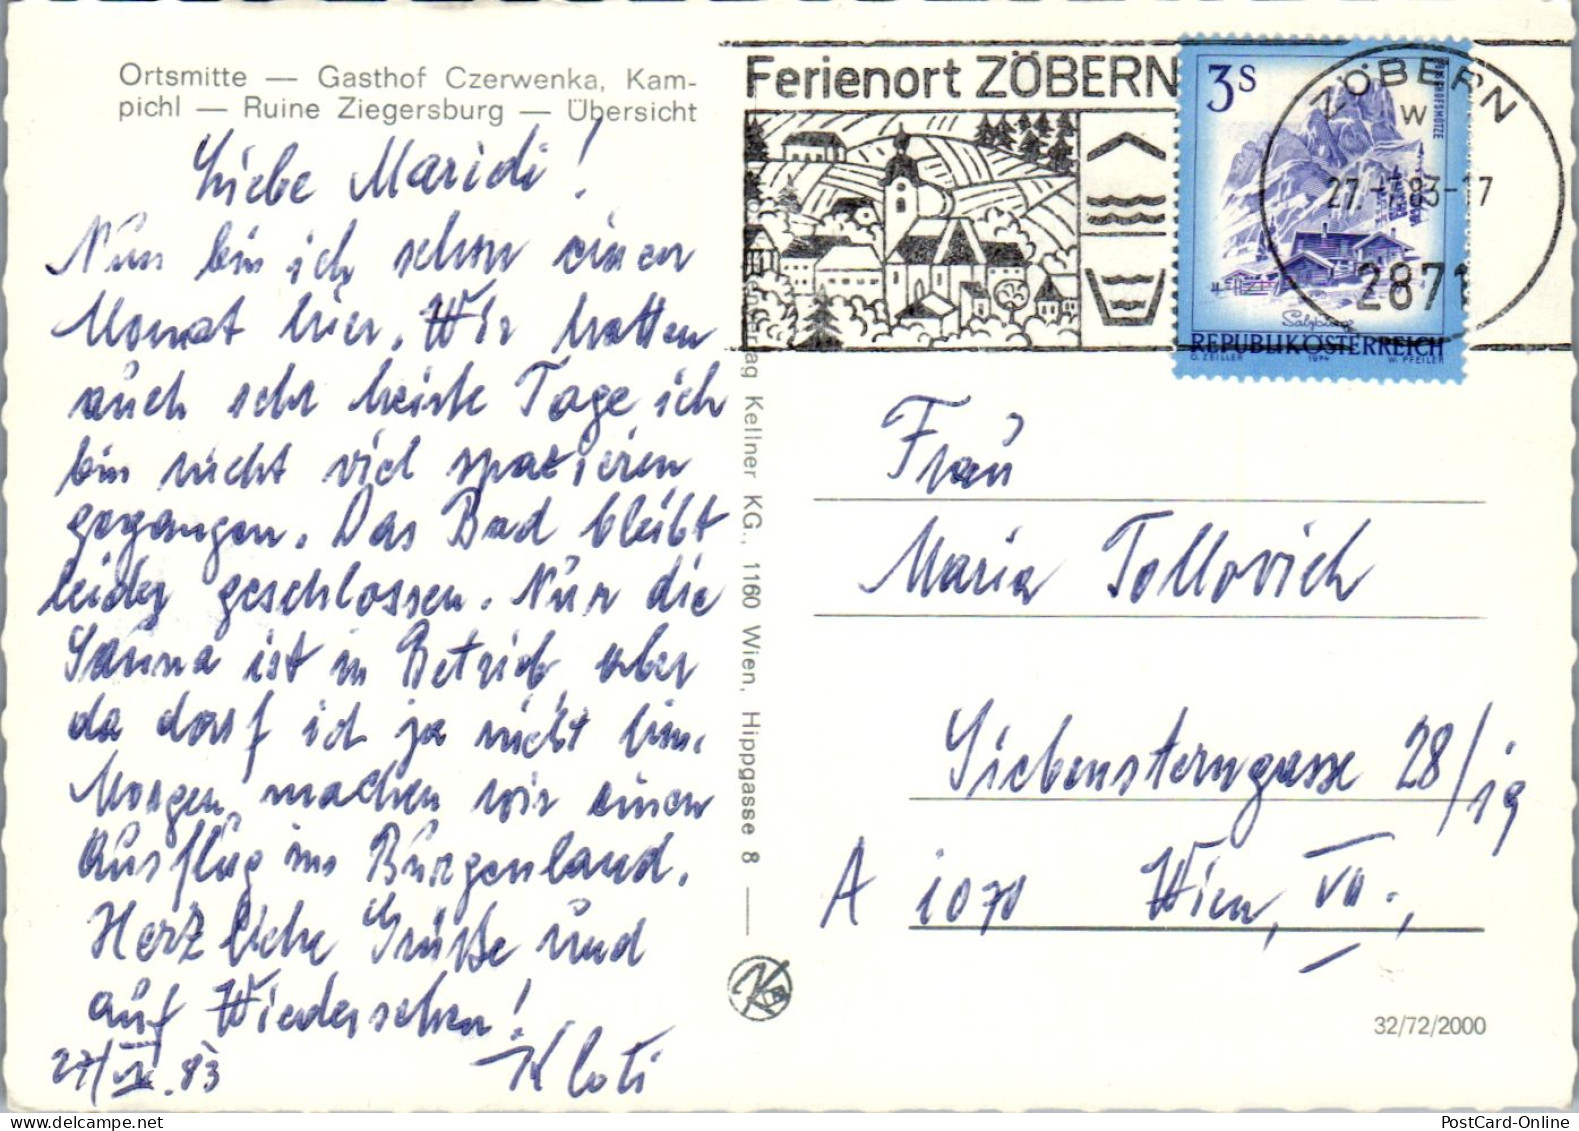 Ortsmitte — Gasthof Czerwenka, Kam-
pichl — Ruine Ziegersburg — Übersicht
Liebe Maridi!
Nun bin ich schon einen
Monat hier. Wir hatten
auch sehr heiße Tage ich
bin nicht viel spazieren
gegangen. Das Bad bleibt
leider geschlossen. Nur die
Sauna ist in Betrieb, aber
da darf ich ja nicht hin.
Morgen machen wir einen
Ausflug ins Burgenland.
Herzliche Grüße und
auf Wiedersehen!
Kloti
27/VII.83
Kellner KG., 1160 Wien, Hippgasse 8
Ferienort ZÖBERN
ZÖBERN
W
27.-7.83-17
2871
3S
BISCHOFSMÜTZE
Salzburg
REPUBLIK ÖSTERREICH
O. ZEILLER 1974 W. PFEILER
Frau
Maria Tollovich
Siebensterngasse 28/19
A 1070 Wien, VII.,
32/72/2000
PostCard - PostCard-Online